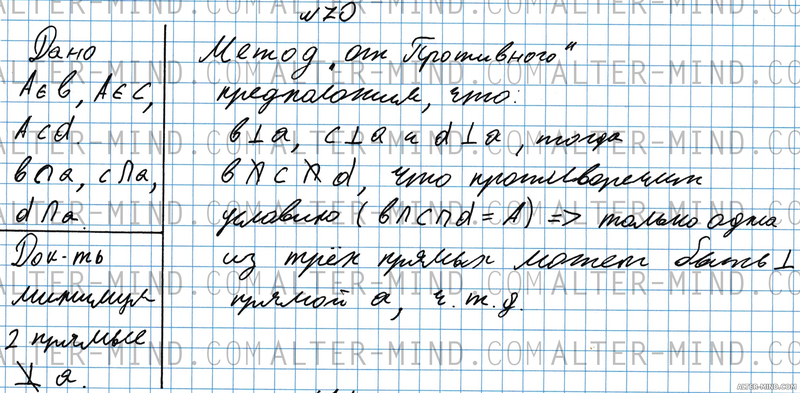 № 70
Дано
A∈b, A∈c,
A⊂d.
b∩a, c∩a,
d∩a.
Док-ть
минимум
2 прямые
⊥̸ a.
Метод „от Противного"
предположим, что:
b⊥a, c⊥a и d⊥a, тогда
b ∩̸ c ∩̸ d, что противоречит
условию (b∩c∩d = A) => только одна
из трёх прямых может быть ⊥
прямой a, ч.т.д.
ALTER-MIND.COM